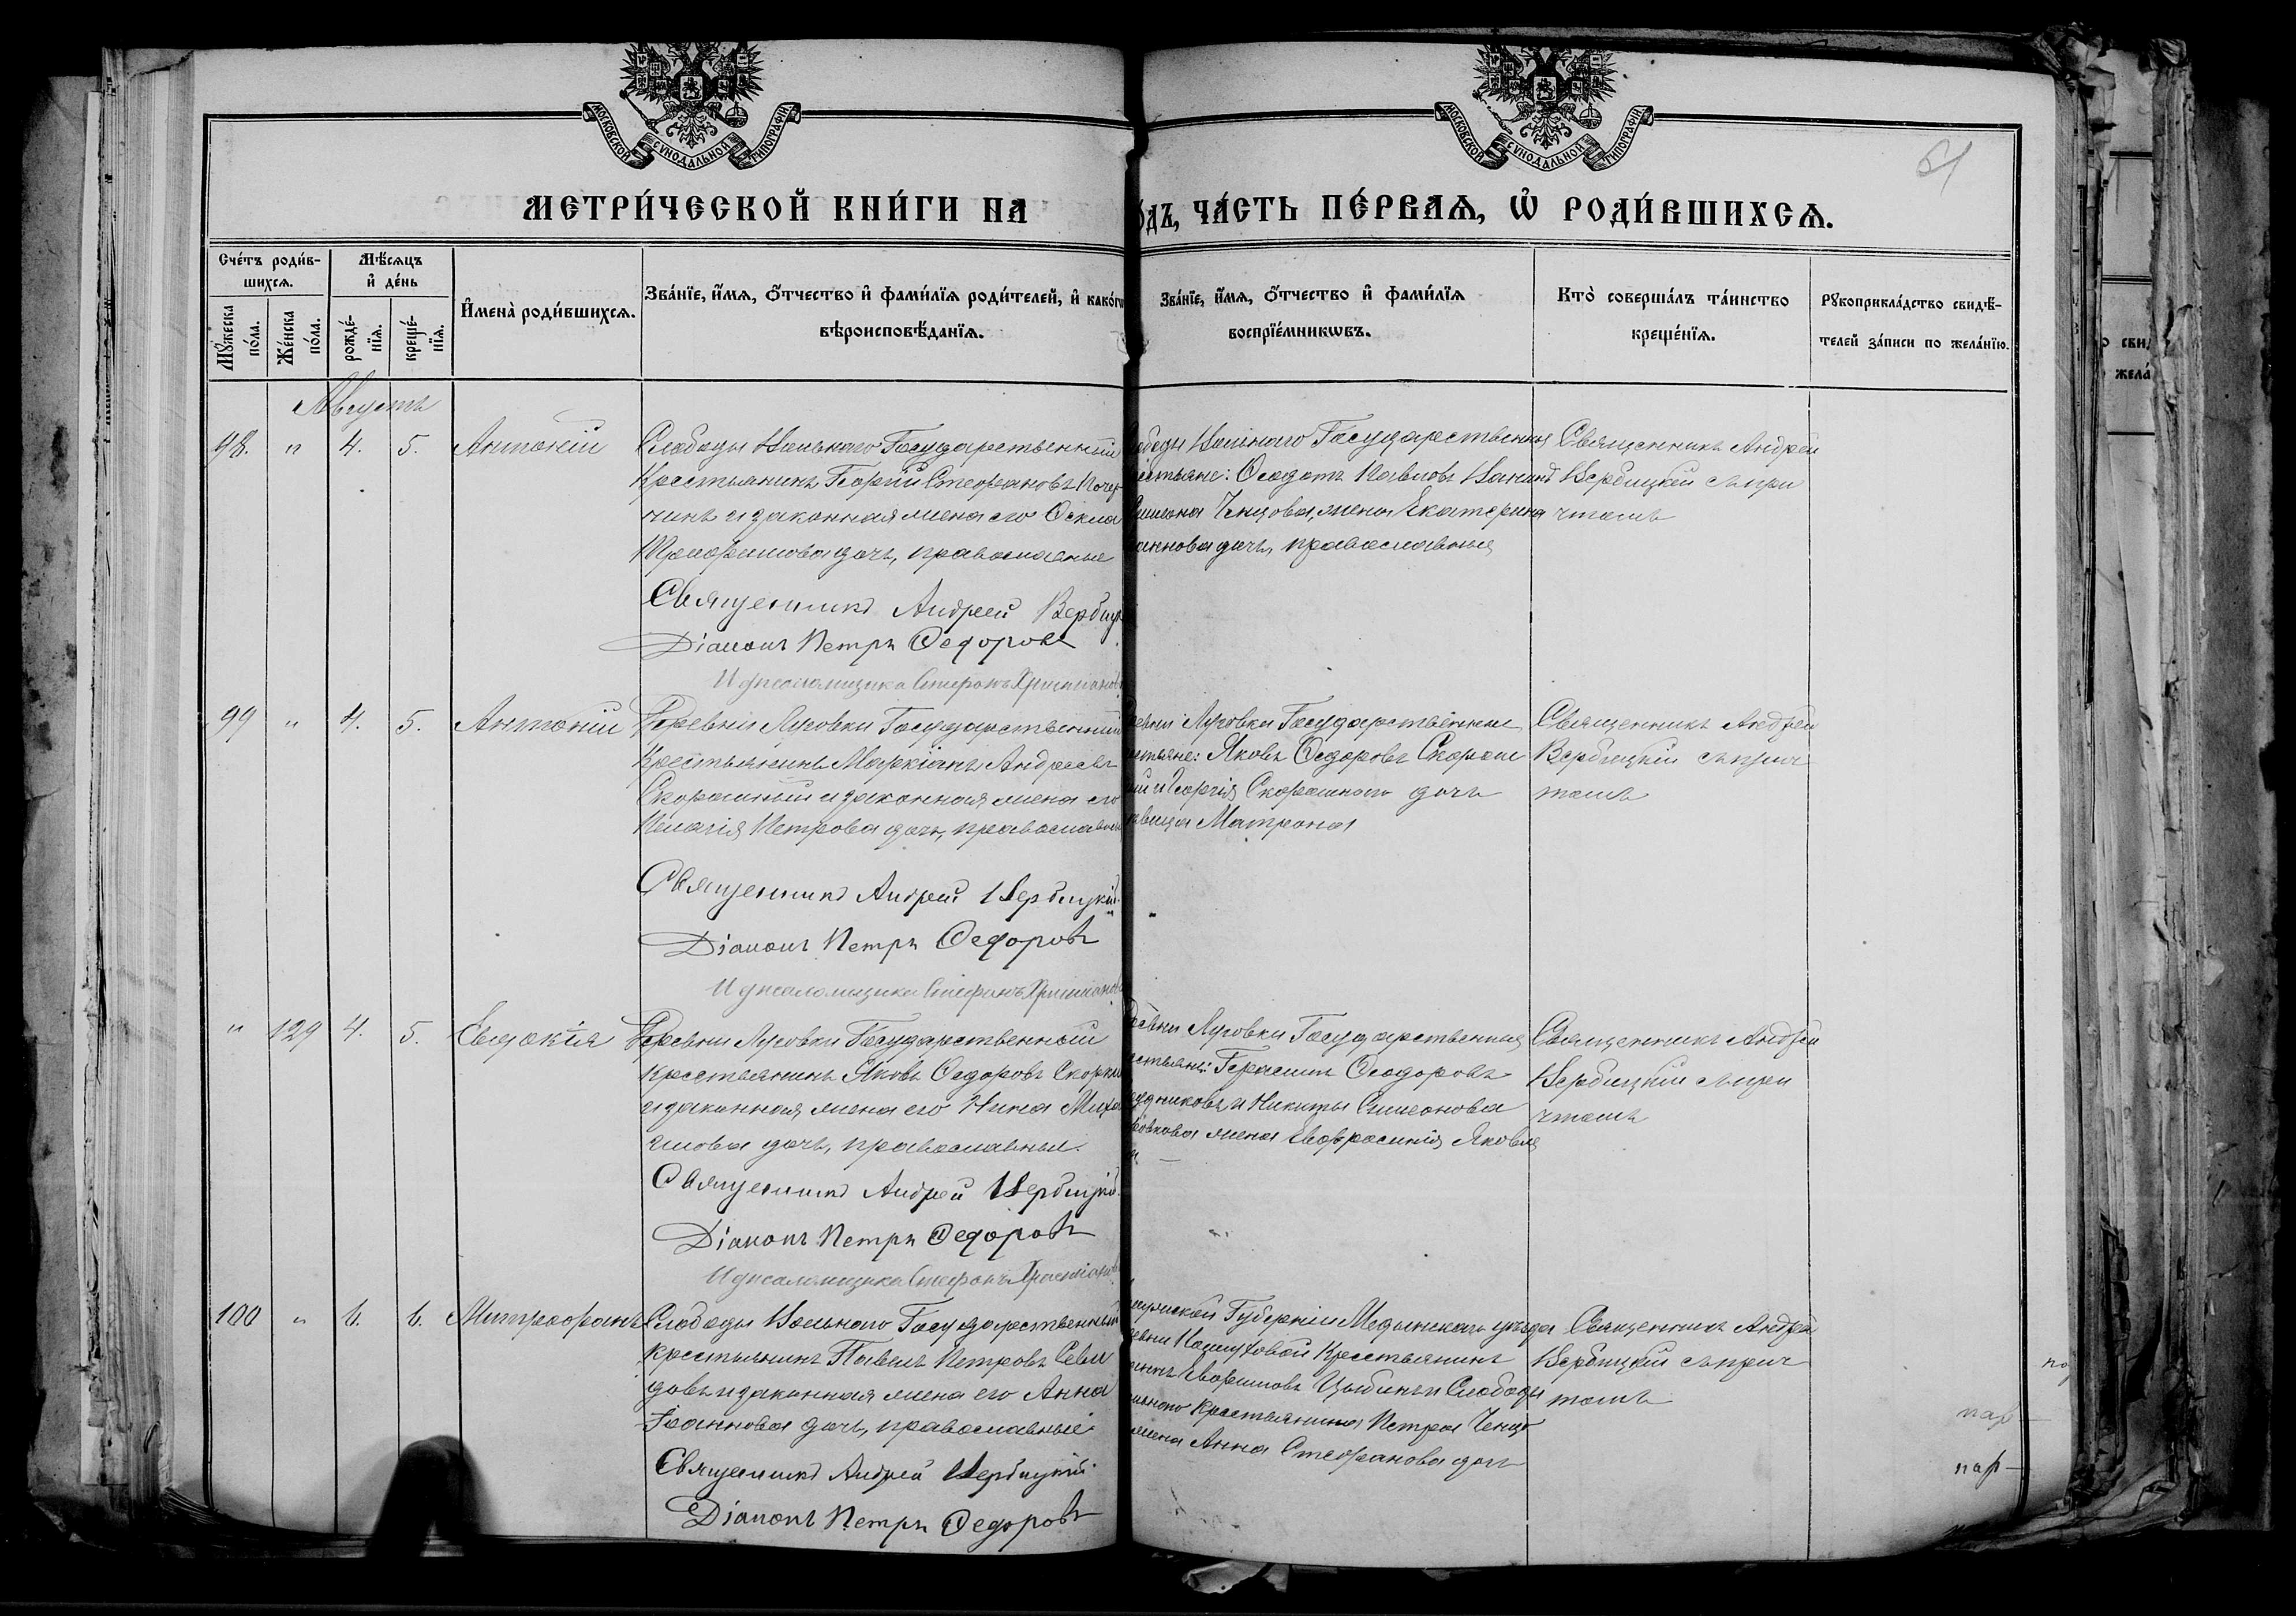 МОСКОВСКОЙ СУНОДАЛЬНОЙ ТИПОГРАФІИ.
МОСКОВСКОЙ СУНОДАЛЬНОЙ ТИПОГРАФІИ.
МЕТРИ́ЧЕСКОЙ КНИ́ГИ НА
ѻ́дъ, ЧА́СТЬ ПЕ́РВАѦ, Ѡ҆ РОДИ́ВШИХСѦ.
Сче́тъ роди́в-
шихсѧ.
Мꙋ́жеска по́ла.
Же́нска по́ла.
Мѣ́сѧцъ
и҆ де́нь
рожде́-
нїѧ.
креще́-
нїѧ.
И҆мена̀ роди́вшихсѧ.
Зва́нїе, и҆́мѧ, ѻ҆́тчество и҆ фами́лїѧ роди́телей, и҆ како́гѡ
вѣроисповѣ́данїѧ.
Зва́нїе, и҆́мѧ, ѻ҆́тчество и҆ фами́лїѧ
воспрїе́мникѡвъ.
Кто̀ соверша́лъ та́инство
креще́нїѧ.
Рꙋкоприкла́дство свидѣ́-
телей за́писи по жела́нїю.
Августъ
98. " 4. 5. Антоній
Слободы Вольнаго Государственный
Крестьянинъ Георгій Стефановъ
и законная жена его Фекла
Трофимова дочь, православные
Священникъ Андрей Вербиц
Діаконъ Петръ Федоровъ
И д псаломщика Стефанъ Христіанов
ободы Вольнаго Государственныя
естьяне: Феодотъ Павловъ Ванинъ
Ченцова, жена Екатерина
анновадочь, православныя
Священникъ Андрей
Вербицкій съ при
чтомъ
99 " 4. 5. Антоній
Деревни Луговки Государственный
Крестьянинъ Маркіанъ Андреевъ
и законная жена его
Пелагія Петрова дочь, православн
Священникъ Андрей Вербицкій.
Діаконъ Петръ Федоровъ
И д псаломщика Стефанъ Христіанов
евни Луговки Государственные
стьяне: Яковъ Федоровъ
и Георгія дочь
вица Матрона
Священникъ Андрей
Вербицкій съ прич
томъ
" 129 4. 5. Евдокія
Деревни Луговки Государственный
крестьянинъ Яковъ Федоровъ
и законная жена его Нина Миха
илова дочь, православные.
Священникъ Андрей Вербицкій.
Діаконъ Петръ Федоровъ
И д псаломщика Стефанъ Христіанов
евни Луговки Государственныя
стьяне: Герасимъ Феодоровъ
удниковъ, и Никиты Симеонова
жена Евфросинія Яковле
а
Священникъ Андрей
Вербицкій съ при
чтомъ
100 " 6. 6. Митрофанъ
Слободы Вольнаго Государственный
крестьянинъ Павелъ Петровъ Севи
довъ и законная жена его Анна
Іоаннова дочь, православные.
Священникъ Андрей Вербицкій.
Діаконъ Петръ Федоровъ
Губерніи Медынскаго уѣзда
евни крестьянинъ
Евфимовъ Цыбинъ и Слободы
льнаго крестьянина Петра Ченцо
жена Анна Стефанова дочь
Священникъ Андрей
Вербицкій съ прич
томъ
пар
пар